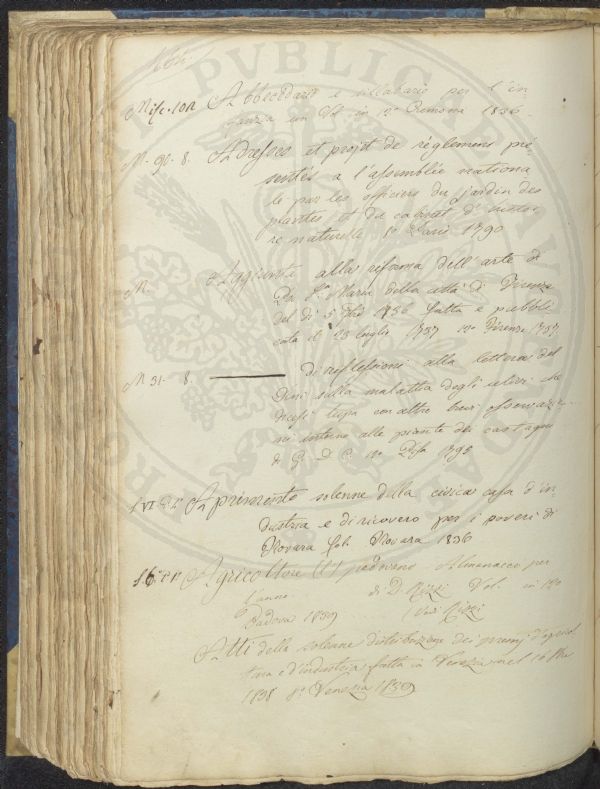 164
Misc. 102 Abbecedario e sillabario per l'in-
fanzia un Vol. in 12° Cremona 1836
M. 90. 8. Adresses et projet de règlemens pré-
sentés a l'assemblée nationa
le par les officiers du jardin des
plantes et du cabinet d'histoi-
re naturelle 8° Paris 1790
M. Aggiunte alla riforma dell'arte di
Maria della città di Firenze
del di 5 1736 fatta e pubbli
cata il 23 luglio 1737 12° Firenze 1737.
M 31. 8. di riflessioni alla lettera del
Dini sulla malattia degli ulivi, che
dicesi lupa con altre brevi osservazio-
ni intorno alle piante dei castagni
di G. D. P. Pisa 1795
Aprimento solenne della civica casa d'in-
dustria e di ricovero per i poveri di
Novara Novara 1836
Agricoltore (L') padovano Almanacco per
l'anno di D. Rizzi Vol. in 12°
Padova 1839 Vedi Rizzi
Atti della solenne distribuzione dei premj d'agricol
tura e d'industria fatta in Venezia nel
1838 8° Venezia 1839
PVBLICAE